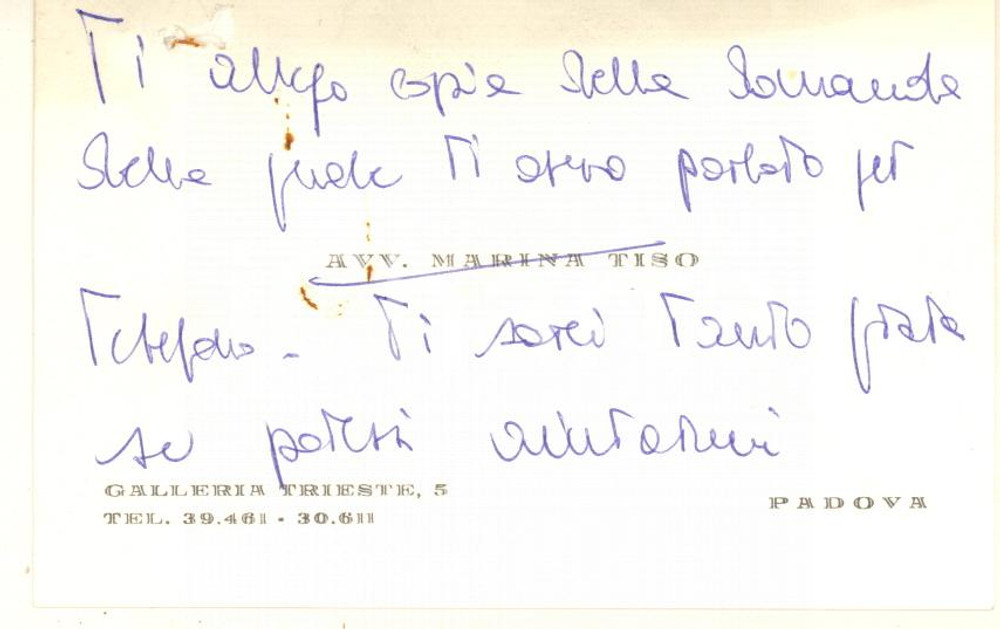 Ti allego copia della domanda
della quale Ti avevo parlato per
AVV. MARINA TISO
Telefono - Ti sarei tanto grata
se potessi aiutarmi
GALLERIA TRIESTE, 5
TEL. 39.461 - 30.611
PADOVA